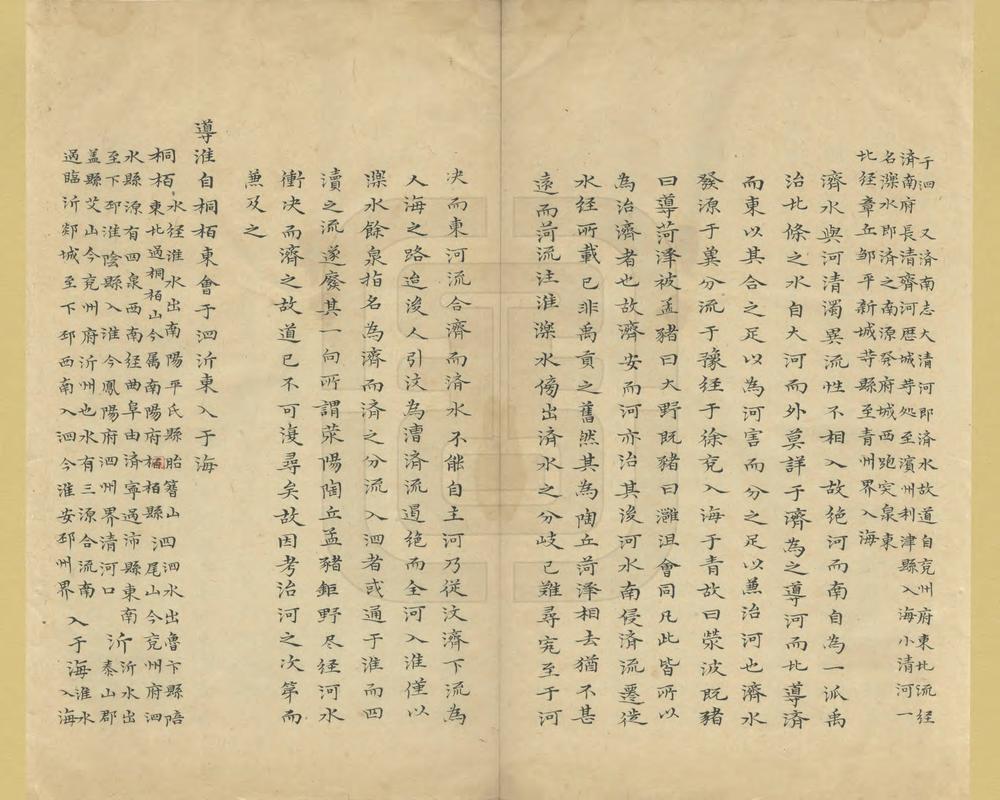 于泗　又濟南志大清河即濟水故道自兗州府東北流経
済南府長清齊河歴城䒭処至濱州利津縣入海小清河一
名濼水即济之南源発府城西跑突泉東
北経章丘邹平新城䒭縣至青州界入海
濟水與河清濁異流性不相入故絶河而南自為一派禹
治北條之水自大河而外莫詳于濟為之導河而北導済
而東以其合之足以為河害而分之足以兼治河也濟水
發源于冀分流于豫経于徐兗入海于青故曰滎波既豬
曰導菏澤被孟豬曰大野既豬曰灉沮會同凡此皆所以
為治濟者也故濟安而河亦治其後河水南侵済流遷徙
水経所載已非禹貢之舊然其為陶丘菏澤相去猶不甚
遠而菏流注淮濼水傍出済水之分岐已難尋究至于河
决而東河流合濟而済水不能自主河乃従汶濟下流為
入海之路迨後人引汶為漕済流遏絶而全河入淮僅以
濼水餘泉指名為濟而済之分流入泗者或通于淮而四
瀆之流遂廢其一向所謂滎陽陶丘孟豬鉅野尽経河水
衝决而濟之故道已不可復尋矣故因考治河之次第而
兼及之
導淮自桐栢東會于泗沂東入于海
桐栢水経淮水出南陽平氏縣胎簪山泗泗水出魯卞縣陪
桐栢東北過桐栢山今属南陽府桐栢縣泗尾山今兗州府泗
水縣源有四泉西南経曲阜由済寧過沛縣東南沂沂水出
至下邳淮陰縣入淮今鳳陽府泗州界清河口泰山郡
盖縣艾山今兗州府沂州也水有三源合流南入于海淮水
過臨沂郯城至下邳西南入泗今淮安邳州界入海